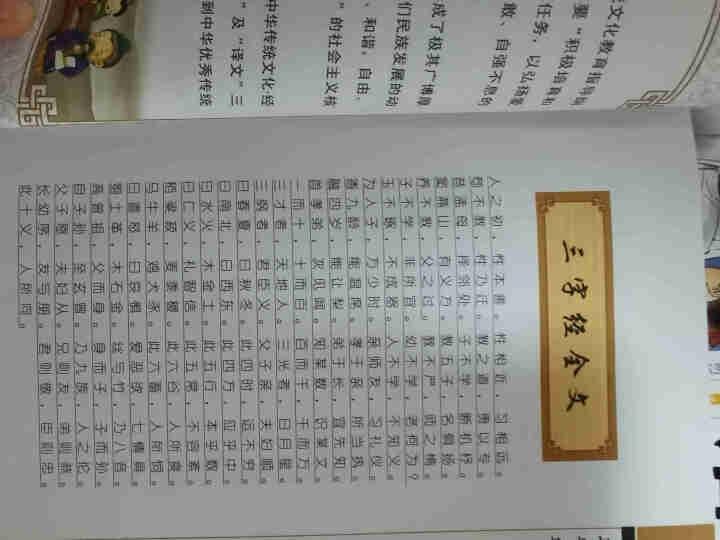 文化教育指导
要“积极培育和
任务，以弘扬爱
敢、自强不息的
成了极其广博
们民族发展的动
、和谐、自由、
”的社会主义核
中华传统文化·经
”及“译文”三
到中华优秀传统
三字经全文
人之初，性本善。性相近，习相远。
苟不教，性乃迁。教之道，贵以专。
昔孟母，择邻处。子不学，断机杼。
窦燕山，有义方。教五子，名俱扬。
养不教，父之过。教不严，师之惰。
子不学，非所宜。幼不学，老何为？
玉不琢，不成器。人不学，不知义。
为人子，方少时。亲师友，习礼仪。
香九龄，能温席。孝于亲，所当执。
融四岁，能让梨。弟于长，宜先知。
首孝弟，次见闻。知某数，识某文。
一而十，十而百。百而千，千而万。
三才者，天地人。三光者，日月星。
三纲者，君臣义。父子亲，夫妇顺。
曰春夏，曰秋冬。此四时，运不穷。
曰南北，曰西东。此四方，应乎中。
曰水火，木金土。此五行，本乎数。
曰仁义，礼智信。此五常，不容紊。
稻粱菽，麦黍稷。此六谷，人所食。
马牛羊，鸡犬豕。此六畜，人所饲。
曰喜怒，曰哀惧。爱恶欲，七情具。
匏土革，木石金。丝与竹，乃八音。
高曾祖，父而身。身而子，子而孙。
自子孙，至玄曾。乃九族，人之伦。
父子恩，夫妇从。兄则友，弟则恭。
长幼序，友与朋。君则敬，臣则忠。
此十义，人所同。